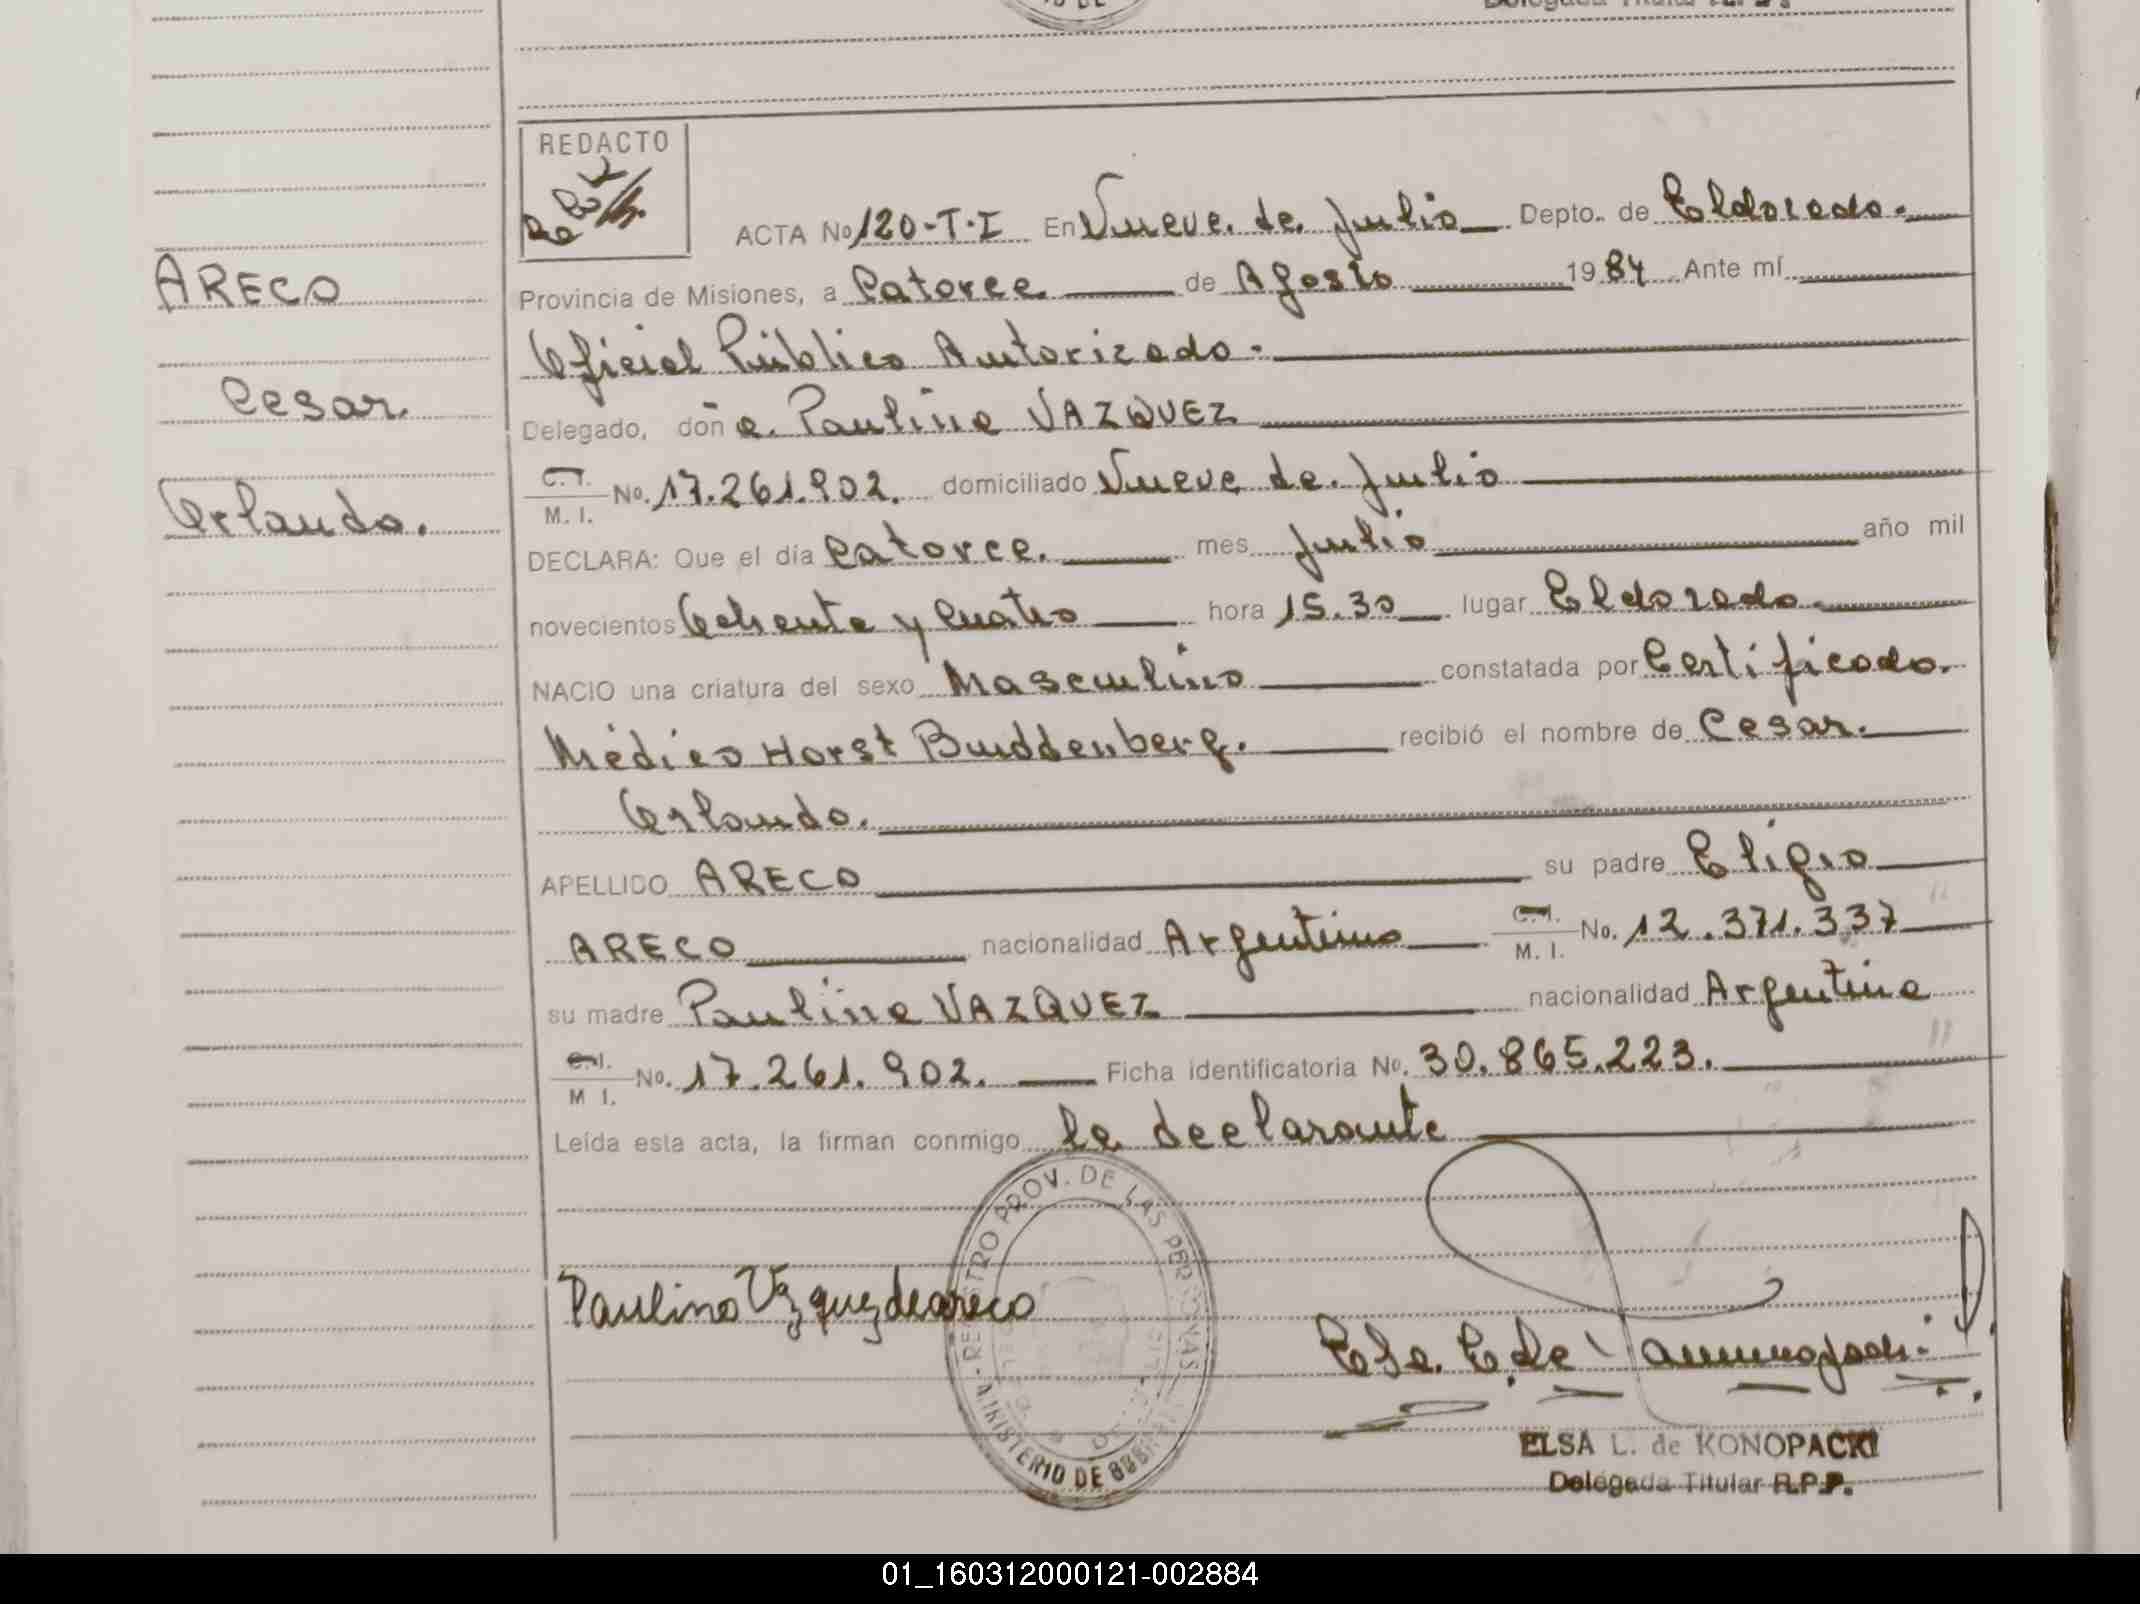 Delegada Titular R.P.P.
REDACTO
ACTA No 120-T-I En Nueve de Julio Depto. de Eldorado.
Provincia de Misiones, a Catorce de Agosto 1984 Ante mí
Oficial Público Autorizado.
Delegado, doña Paulina VAZQUEZ
C.I. M.I. No. 17.261.902. domiciliado Nueve de Julio
DECLARA: Que el día Catorce. mes Julio año mil
novecientos Ochenta y Cuatro hora 15.30 lugar Eldorado.
NACIO una criatura del sexo Masculino constatada por Certificado.
Médico Horst Buddenberg. recibió el nombre de Cesar.
Orlando.
APELLIDO ARECO su padre Eligio
ARECO nacionalidad Argentino C.I. M.I. No. 12.371.337
su madre Paulina VAZQUEZ nacionalidad Argentina
C.I. M I. No. 17.261.902. Ficha identificatoria No. 30.865.223.
Leída esta acta, la firman conmigo la declarante
ARECO
Cesar.
Orlando.
Paulina Vazquez de areco
REGISTRO PROV. DE LAS PERSONAS
MINISTERIO DE GOBIERNO
ELSA L. de KONOPACKI
Delegada Titular R.P.P.
01_160312000121-002884